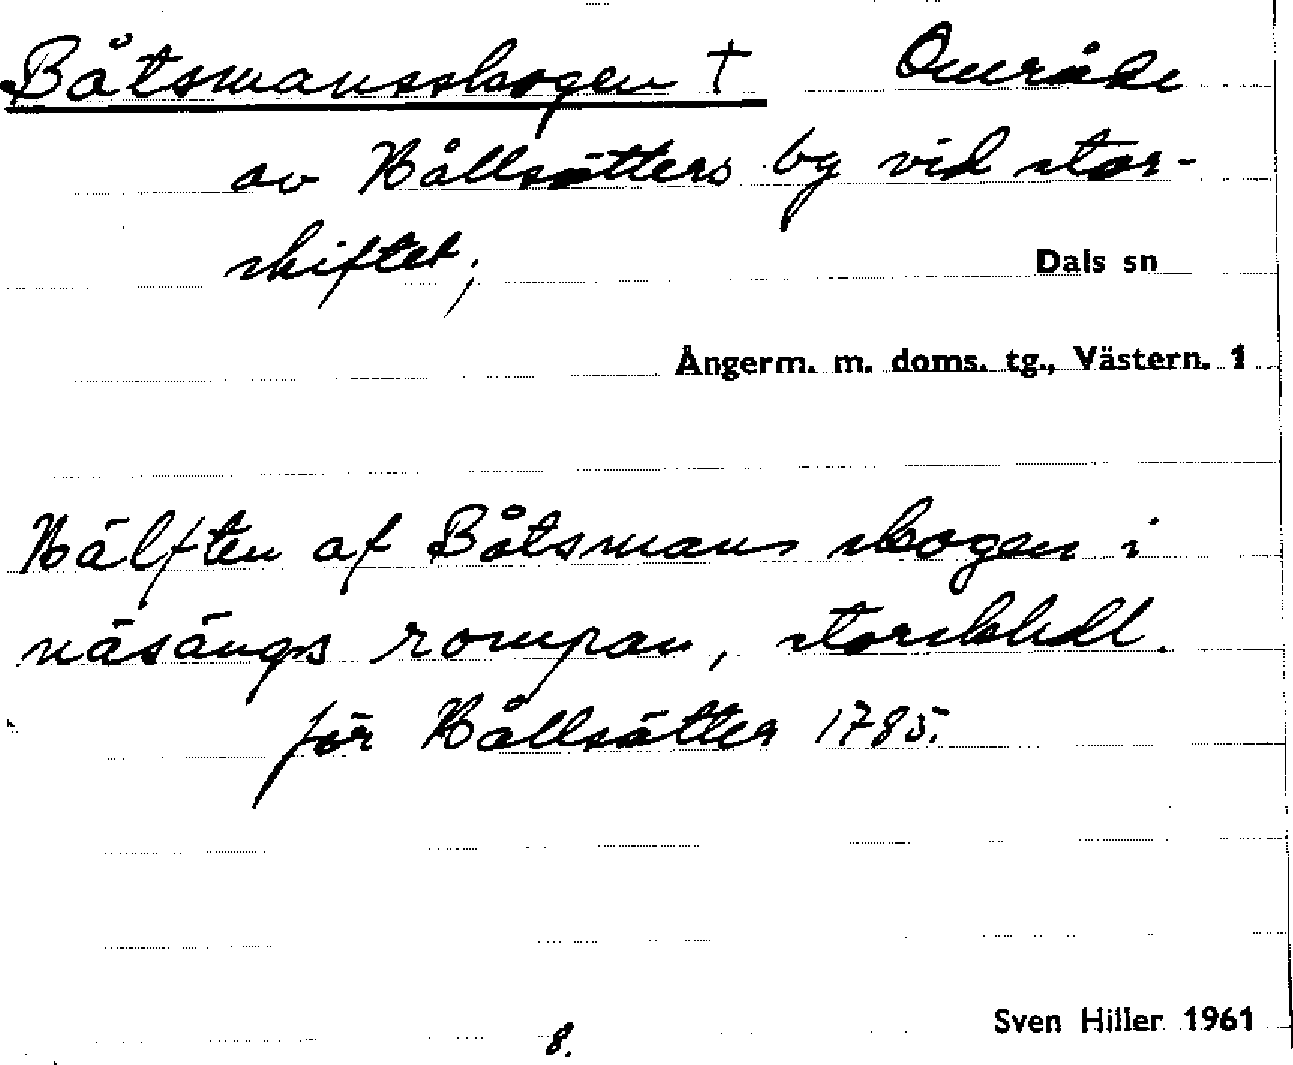 Båtsmansskogen † Område
av Hållsätters by vid stor-
skiftet;
Dals sn
Ångerm. m. doms. tg., Västern. 1
Hälften af Båtsmans skogen i
näsängs rompan, storskhdl.
för Hållsätter 1785.
Sven Hiller 1961
8.